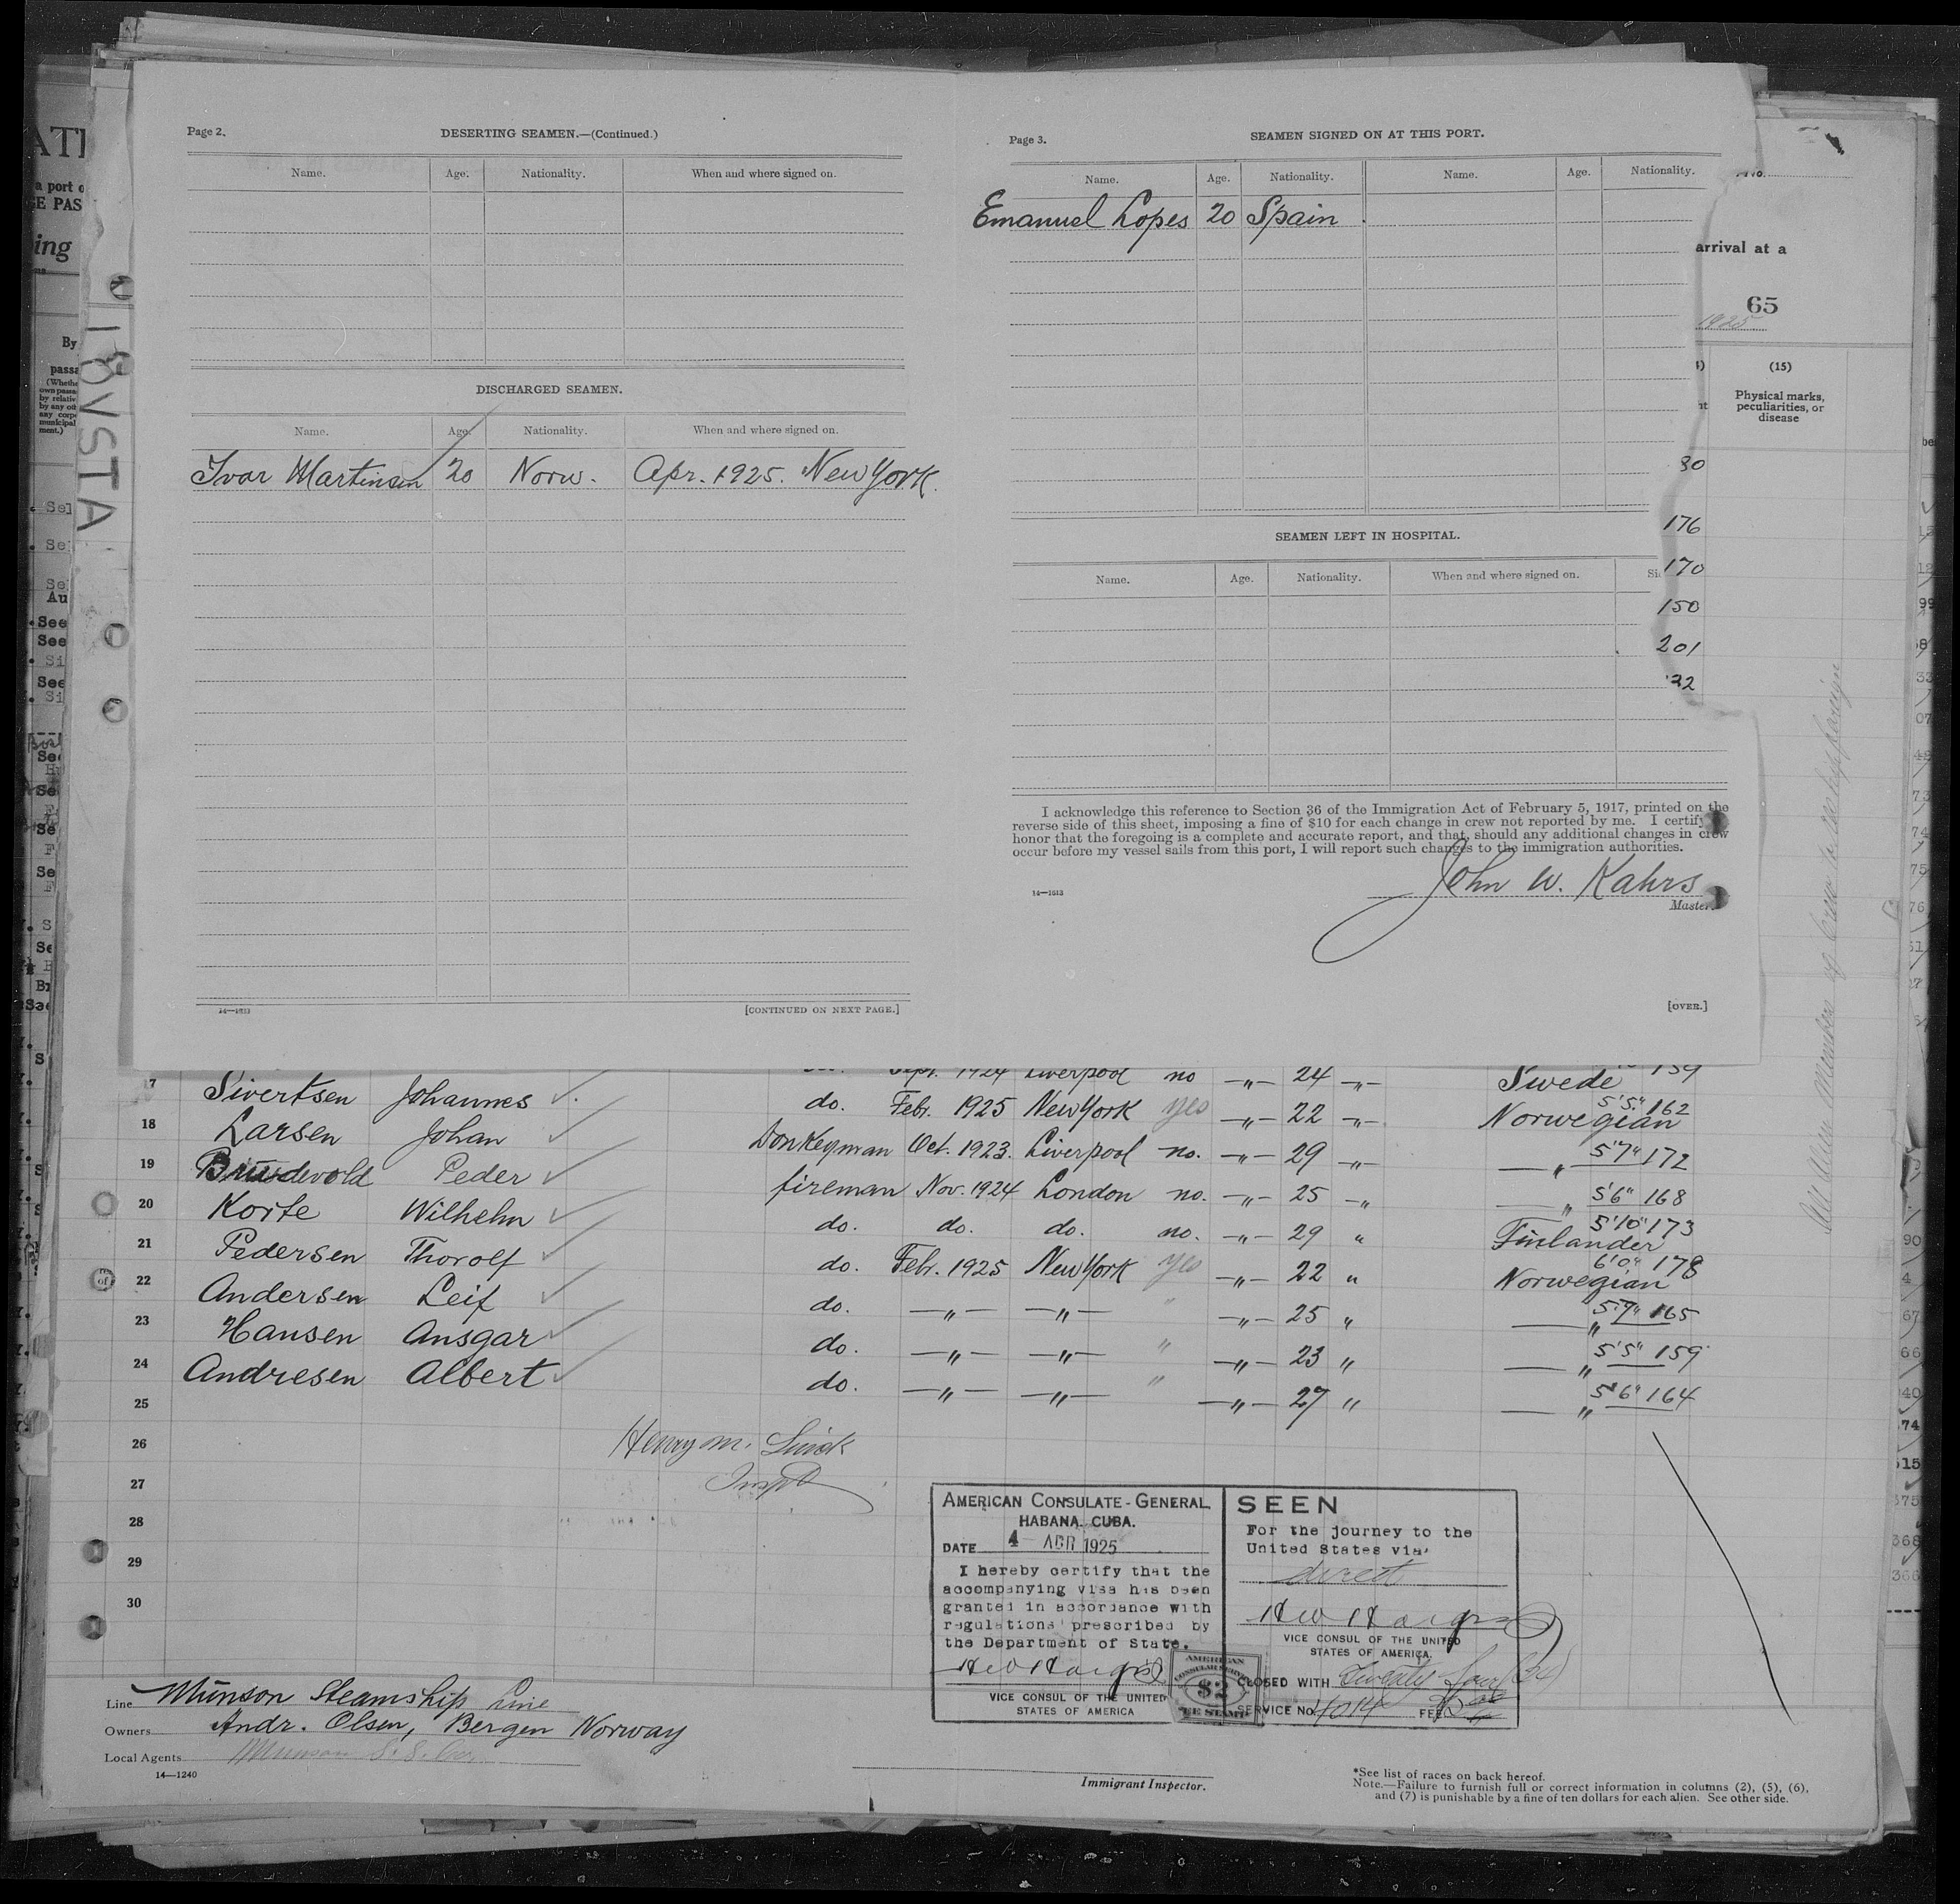 Page 2.
DESERTING SEAMEN.—(Continued.)
Name. Age. Nationality. When and where signed on.
DISCHARGED SEAMEN.
Name. Age. Nationality. When and where signed on.
Ivar Martinsen 20 Norw. Apr. 1925. New York.
14—1633
[CONTINUED ON NEXT PAGE.]
Page 3.
SEAMEN SIGNED ON AT THIS PORT.
Name. Age. Nationality. Name. Age. Nationality.
Emanuel Lopes 20 Spain
SEAMEN LEFT IN HOSPITAL.
Name. Age. Nationality. When and where signed on.
I acknowledge this reference to Section 36 of the Immigration Act of February 5, 1917, printed on the
reverse side of this sheet, imposing a fine of $10 for each change in crew not reported by me. I certify
honor that the foregoing is a complete and accurate report, and that, should any additional changes in crew
occur before my vessel sails from this port, I will report such changes to the immigration authorities.
14—1613
John W. Kahrs
Master.
[OVER.]
arrival at a
65
1925
(15)
Physical marks,
peculiarities, or
disease
30
176
170
150
201
32
do. Sept. 1924 Liverpool no —„— 24 —„— Swede 159
Sivertsen Johannes do. Febr. 1925 New York yes —„— 22 —„— Norwegian 5'5" 162
18 Larsen Johan Donkeyman Oct. 1923. Liverpool no. —„— 29 —„— —„— 5'7" 172
19 Brusdevold Peder fireman Nov. 1924 London no. —„— 25 —„— —„— 5'6" 168
20 Korte Wilhelm do. do. do. no. —„— 29 „ Finlander 5'10" 173
21 Pedersen Thorolf do. Febr. 1925 New York yes —„— 22 „ Norwegian 6'0" 178
22 Andersen Leif do. —„— —„— „ —„— 25 „ —„— 5'7" 165
23 Hansen Ansgar do. —„— —„— „ —„— 23 „ —„— 5'5" 159
24 Andresen Albert do. —„— —„— „ —„— 27 „ —„— 5'6" 164
25
26
27
28
29
30
AMERICAN CONSULATE-GENERAL
HABANA. CUBA.
DATE 4 ABR 1925
I hereby certify that the
accompanying visa has been
granted in accordance with
regulations prescribed by
the Department of State.
VICE CONSUL OF THE UNITED
STATES OF AMERICA
SEEN
For the journey to the
United States via
direct
VICE CONSUL OF THE UNITED
STATES OF AMERICA.
CLOSED WITH Twenty four
SERVICE No. 4014 FEE
AMERICAN
CONSULAR SERVICE
$2
FEE STAMP
Line Munson Steamship Line
Owners Andr. Olsen, Bergen Norway
Local Agents Munson S.S. Line
14—1240
Immigrant Inspector.
*See list of races on back hereof.
Note.—Failure to furnish full or correct information in columns (2), (5), (6),
and (7) is punishable by a fine of ten dollars for each alien. See other side.